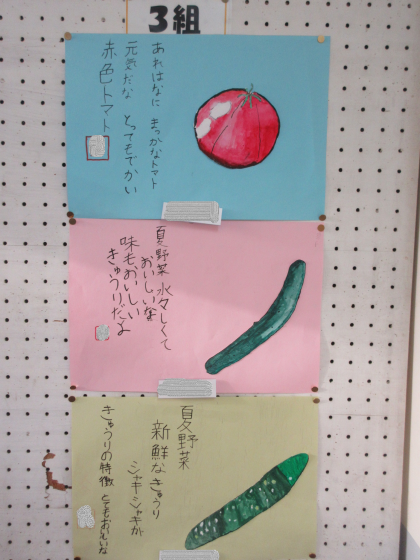 3組
あれはなに まっかなトマト
元気だな とってもでかい
赤色トマト
夏野菜 水々しくて
おいしい
味も、おいしい
きゅうりだよ
夏野菜
新鮮なきゅうり
シャキシャキが
きゅうりの特徴 とてもおいしいな